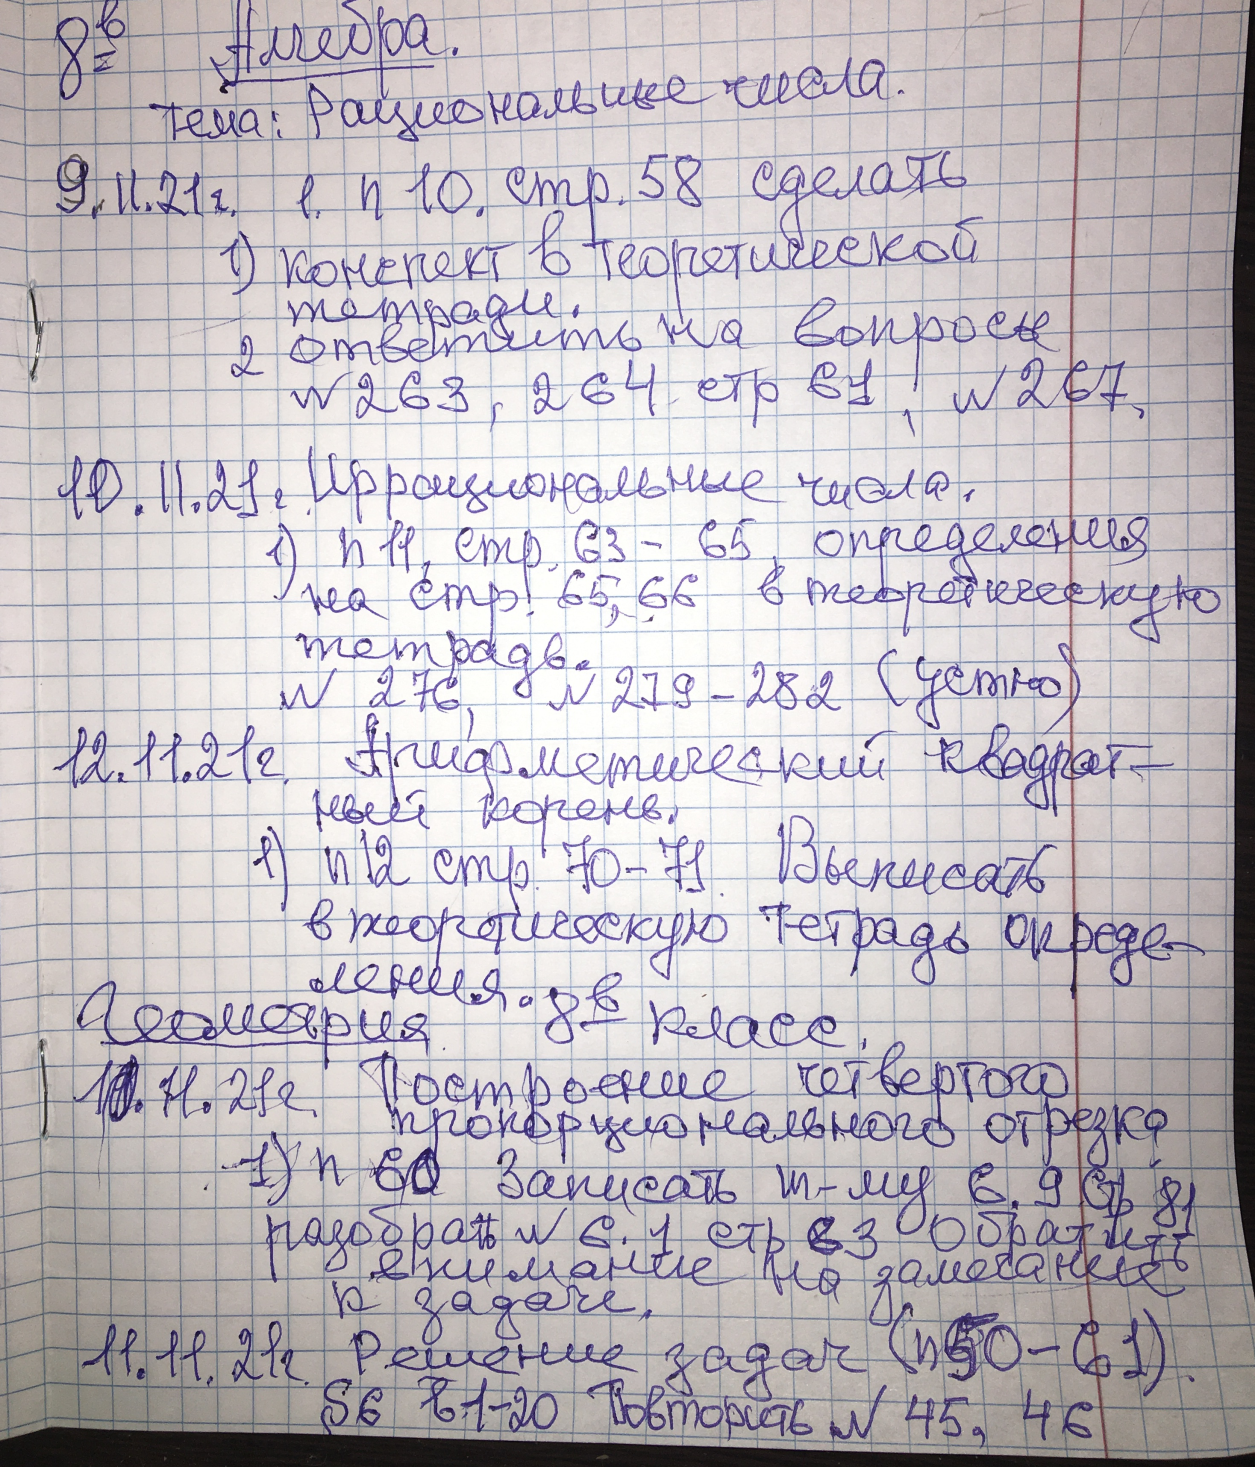 8в Алгебра.
Тема: Рациональные числа.
9.11.21г. 1. п 10. стр. 58 сделать
1) конспект в теоретической
тетради.
2 ответить на вопросы
N 263, 264 стр 61, N 267.
10.11.21г. Иррациональные числа.
1) п 11, стр. 63 - 65, определения
на стр. 65, 66 в теоретическую
тетрадь.
N 276, N 279 - 282 (устно)
12.11.21г. Арифметический квадрат-
ный корень.
1) п 12 стр. 70 - 71 Выписать
в теоретическую тетрадь опреде-
ления.
Геометрия 8в класс.
10.11.21г. Построение четвертого
пропорционального отрезка
1) п 60 Записать т-му 6.9 стр 81
разобрать N 6.1 стр 83 Обратить
внимание на замечание
к задаче.
11.11.21г. Решение задач (п 50 - 61).
§6 В.1-20 Повторить N 45, 46